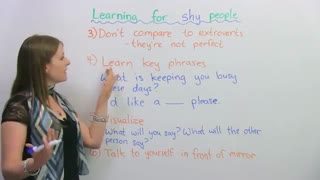 Learning for shy people
3) Don't compare to extroverts
- they're not perfect
4) Learn key phrases
What is keeping you busy
these days?
I'd like a ___ please.
Visualize
What will you say? What will the other
person say?
6) Talk to yourself in front of mirror